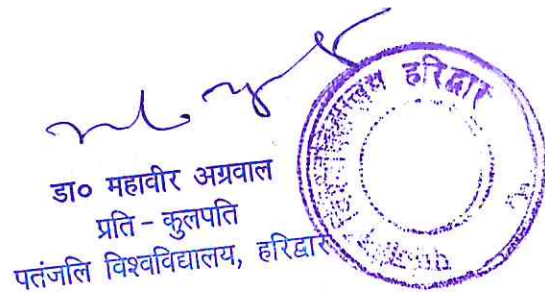 डा० महावीर अग्रवाल
प्रति - कुलपति
पतंजलि विश्वविद्यालय, हरिद्वार
हरिद्वार